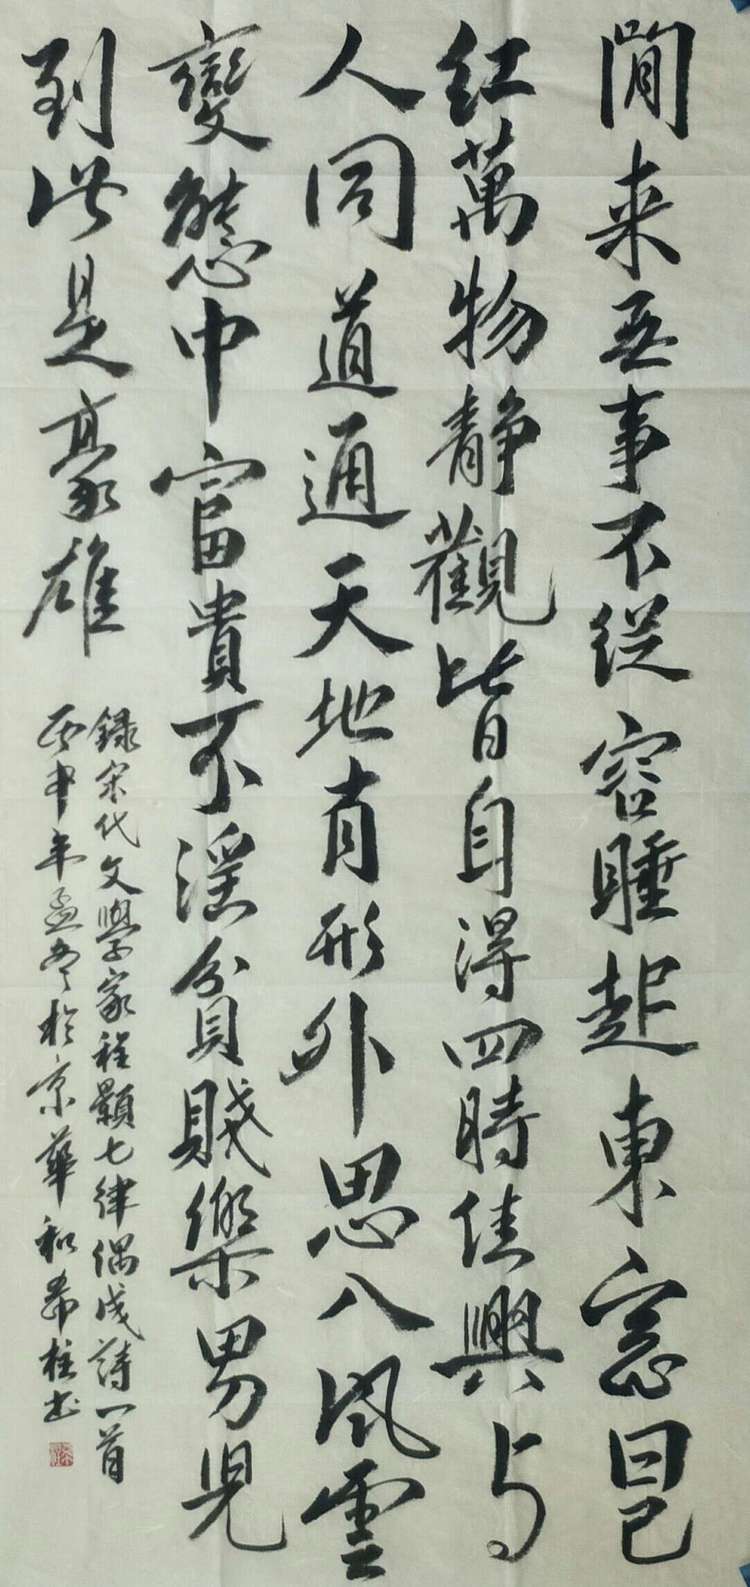 閒来無事不從容睡起東窓日已
红萬物静觀皆自得四時佳興与
人同道通天地有形外思入風雲
變態中富貴不淫貧賤樂男兒
到此是豪雄
録宋代文學家程顥七律偶成詩一首
丙申年孟冬於京華和希柱书